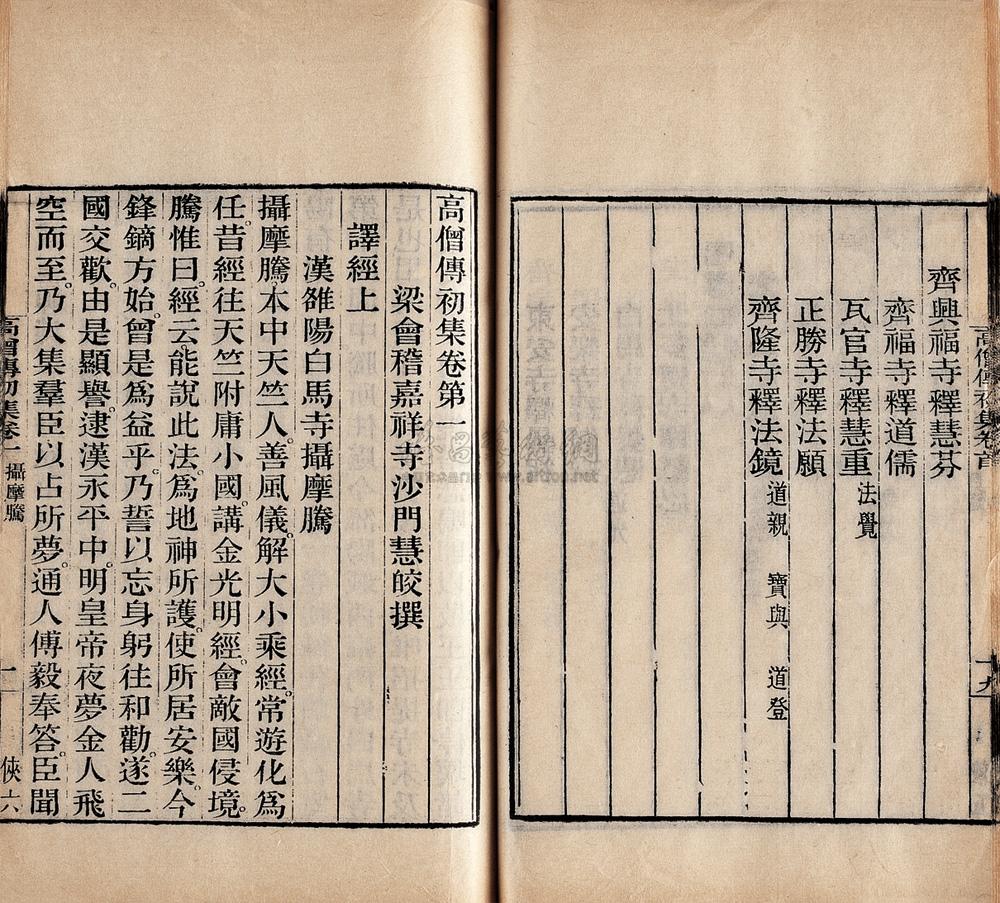 齊興福寺釋慧芬
齊福寺釋道儒
瓦官寺釋慧重 法覺
正勝寺釋法願
齊隆寺釋法鏡 道親 寶與 道登
高僧傳初集卷首
十九
高僧傳初集卷第一
梁會稽嘉祥寺沙門慧皎撰
譯經上
漢雒陽白馬寺攝摩騰
攝摩騰。本中天竺人。善風儀。解大小乘經。常遊化為
任。昔經往天竺附庸小國。講金光明經。會敵國侵境。
騰惟曰。經云能說此法。為地神所護。使所居安樂。今
鋒鏑方始。曾是為益乎。乃誓以忘身。躬往和勸。遂二
國交歡。由是顯譽。逮漢永平中。明皇帝夜夢金人飛
空而至。乃大集羣臣以占所夢。通人傅毅奉答。臣聞
高僧傳初集卷一 攝摩騰
俠六